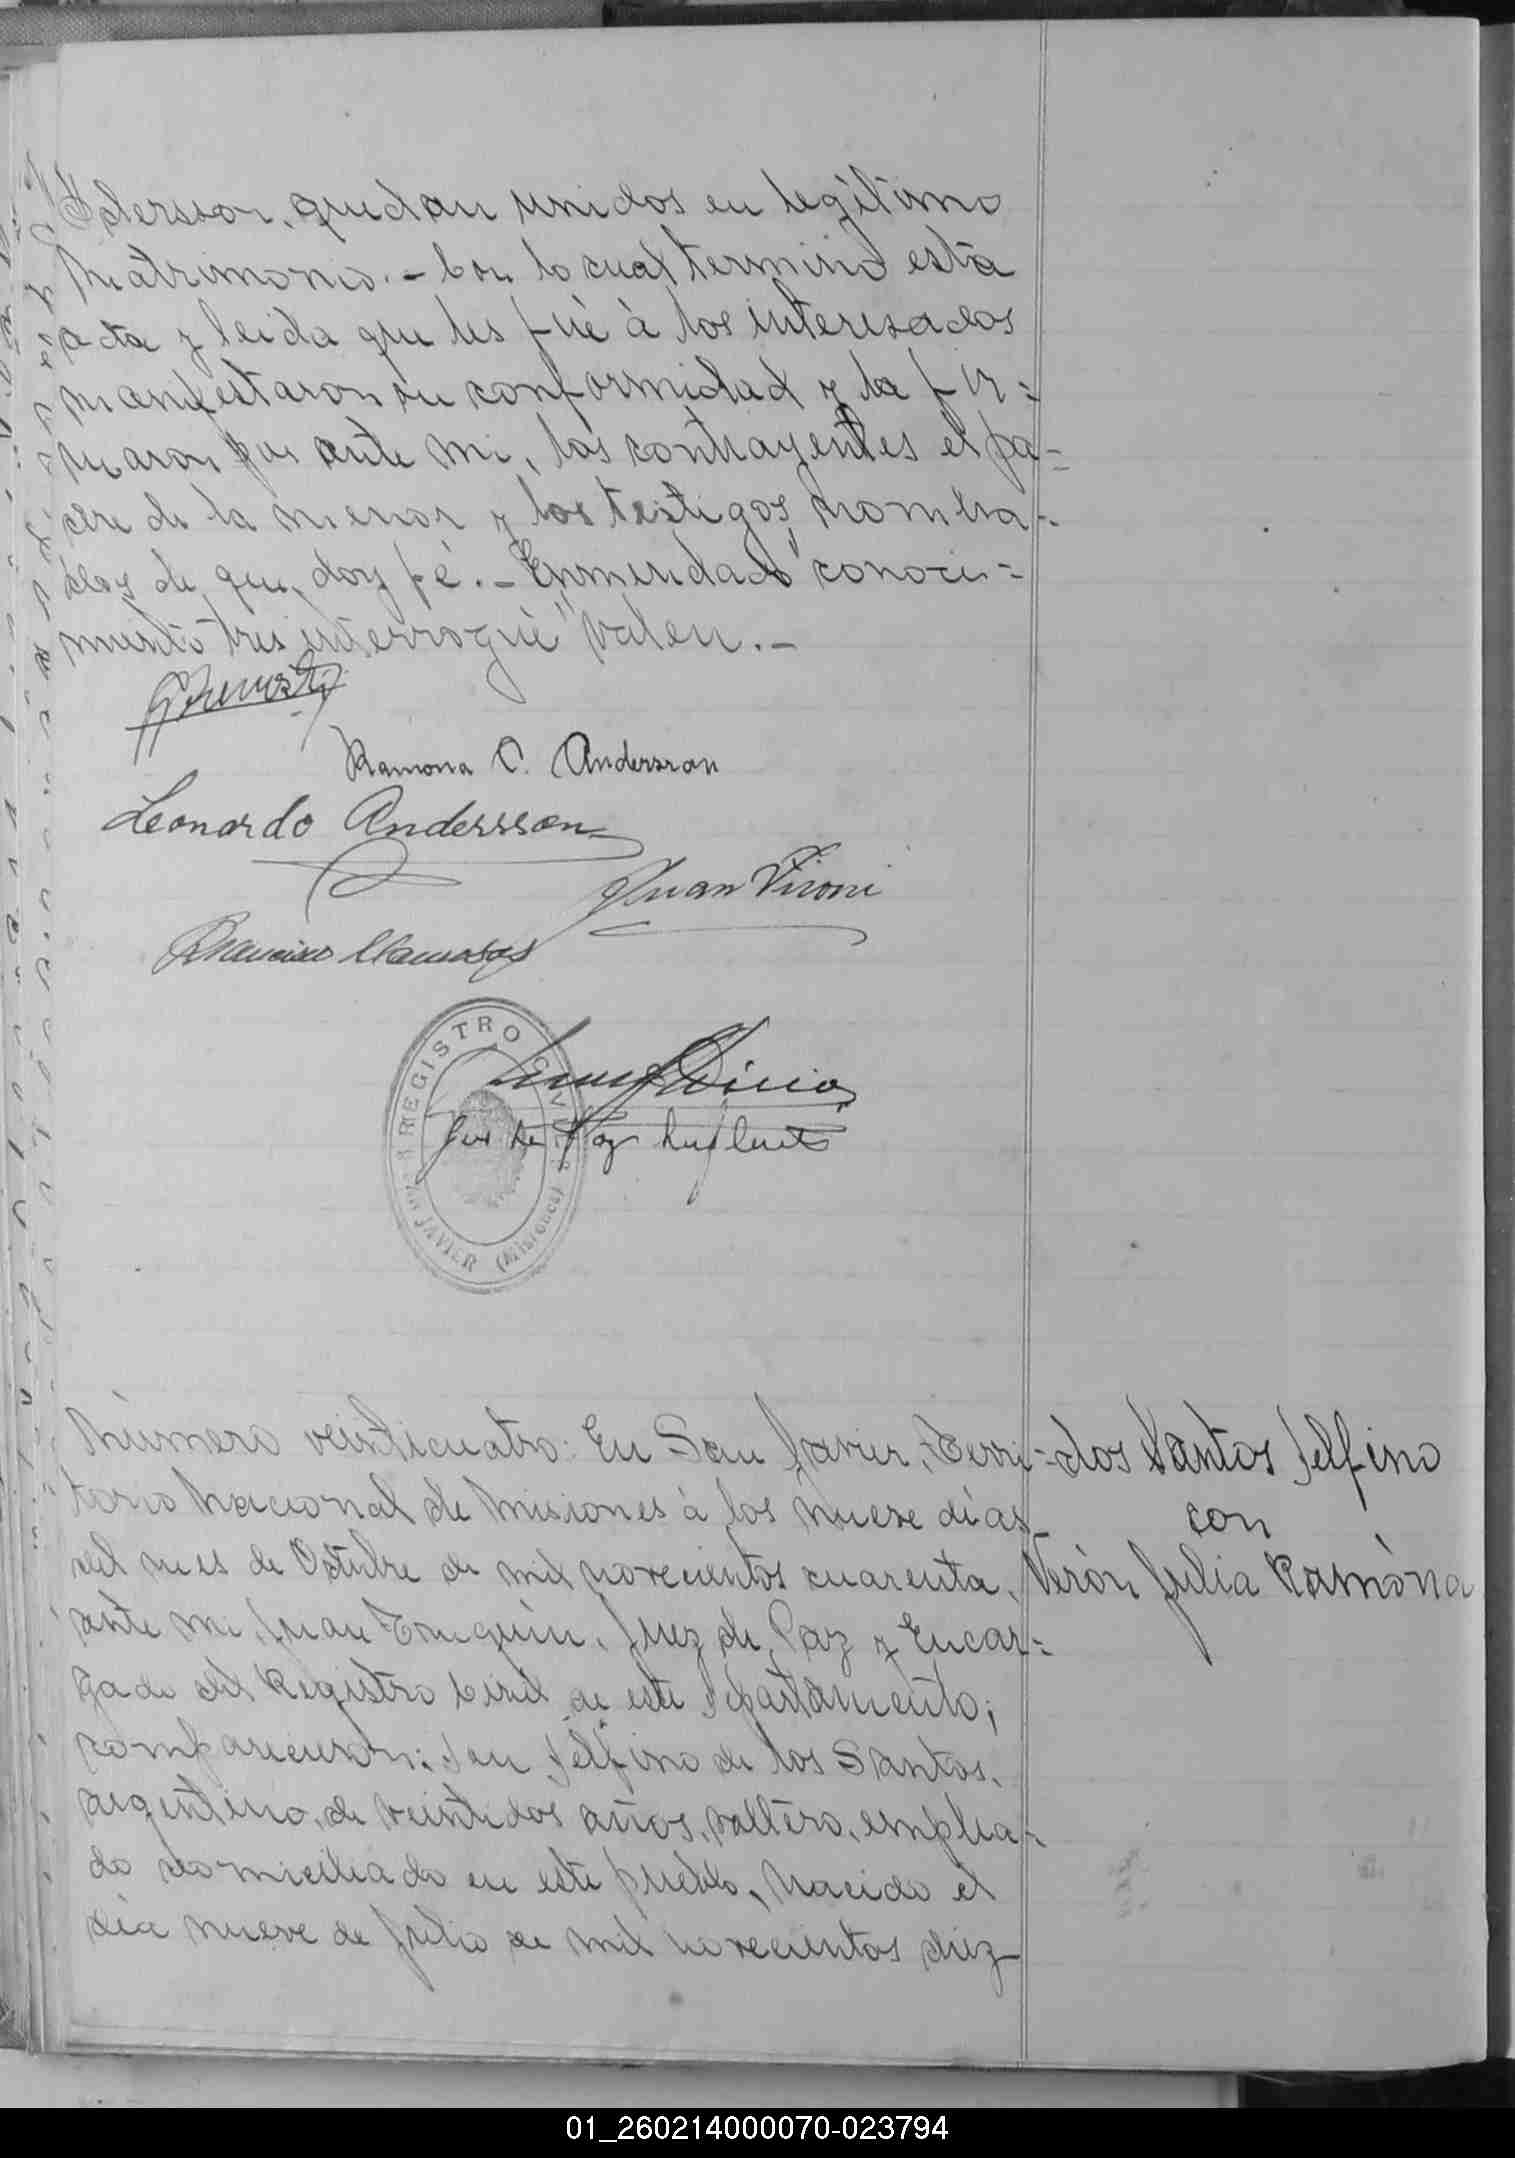 derssor, quedan unidos en legítimo
matrimonio.- Con lo cual terminó esta
acta y leida que les fué à los interesados
manifestaron su conformidad y la fir=
maron por ante mi, los contrayentes el pa=
dre de la menor y los testigos nombra=
dos de que doy fé.- Enmendado "conoci=
miento tres interrogué" Valen.-
Ramona C. Andersson
Leonardo Andersson
Juan Vironi
Francisco Llamosas
REGISTRO CIVIL
JAVIER (Misiones)
Juez de Paz Suplente
Número veinticuatro: En San Javier, Terri=
torio Nacional de Misiones à los nueve días
del mes de Octubre de mil novecientos cuarenta,
ante mi, Juan, Juez de Paz y Encar=
gado del Registro Civil de este Departamento;
comparecieron: Don Delfino de los Santos,
argentino, de veintidos años, soltero, emplea=
do domiciliado en este pueblo, nacido el
día nueve de Julio de mil novecientos diez
dos Santos Delfino
con
Verón Julia Ramóna
01_260214000070-023794